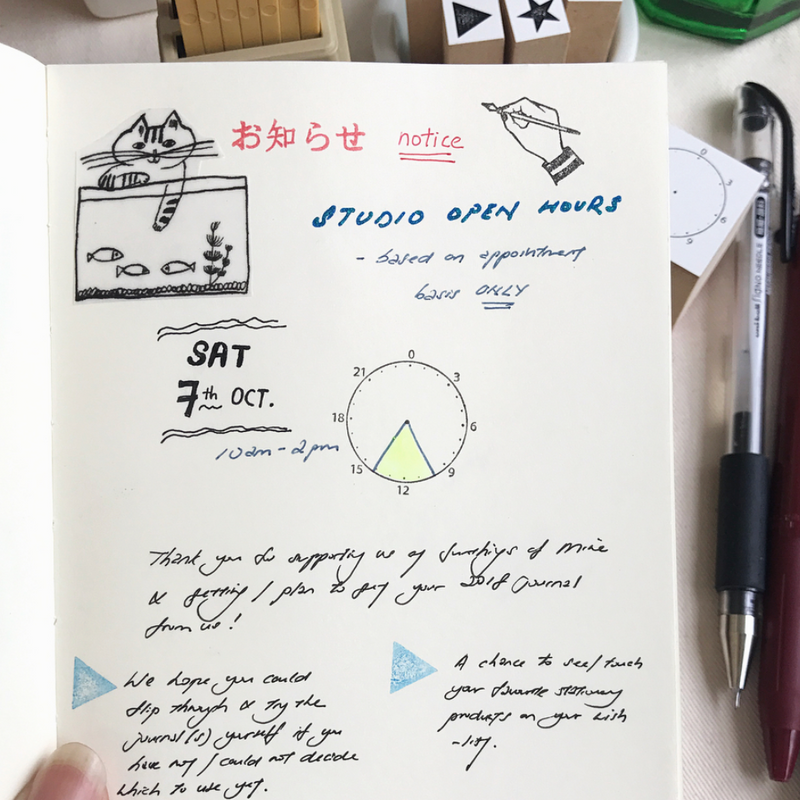 お知らせ notice
STUDIO OPEN HOURS
- based on appointment
basis ONLY
SAT
7th OCT.
10am - 2pm
0
3
6
9
12
15
18
21
Thank you for supporting us of mine
& getting / plan to get your 2018 journal
from us!
We hope you could
flip through & try the
journal(s) yourself if you
have not / could not decide
which to use yet.
A chance to see/touch
your favourite stationery
products on your wish
-list.